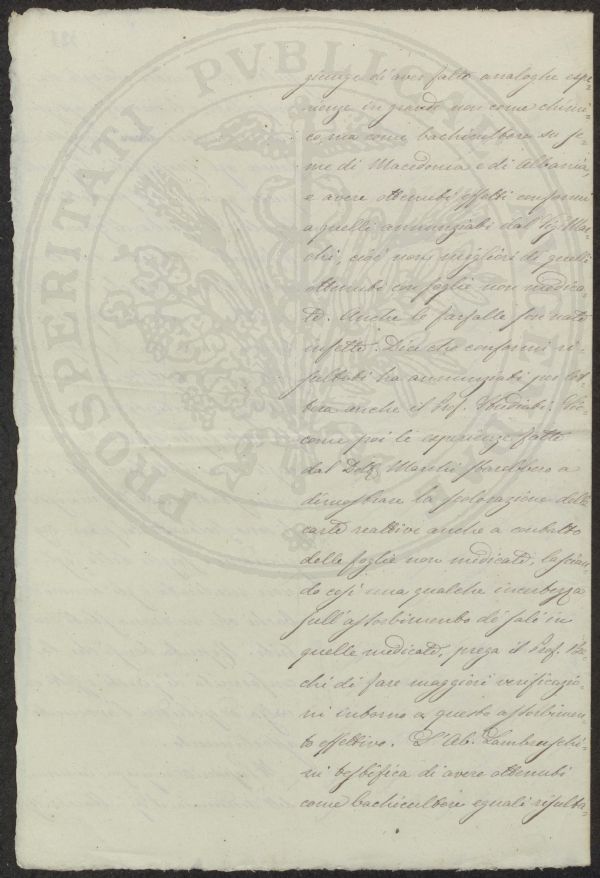 PROSPERITATI PVBLICAE
giunge di aver fatto analoghe espe-
rienze in grande non come chimi-
co, ma come bachicultore su se-
me di Macedonia e di Albania,
e avere ottenuti effetti conformi
a quelli annunziati dal Sig.
cioè non migliori di quelli
ottenuti con foglie non medica-
te. Anche le farfalle son nate
infette. Dice che conformi ri-
sultati ha annunziati per let-
tera anche il Prof. Sic-
come poi le esperienze fatte
dal Dott. a
dimostrare la colorazione delle
carte reattivi anche a contatto
delle foglie non medicate, lascian-
do così una qualche incertezza
sull'assorbimento di sali in
quelle medicate, prega il Prof. Be-
chi di fare maggiori verificazio-
ni intorno a questo assorbimen-
to effettivo. L'Ab. Lambruschi-
ni testifica di avere ottenuti
come bachicultore eguali risulta-